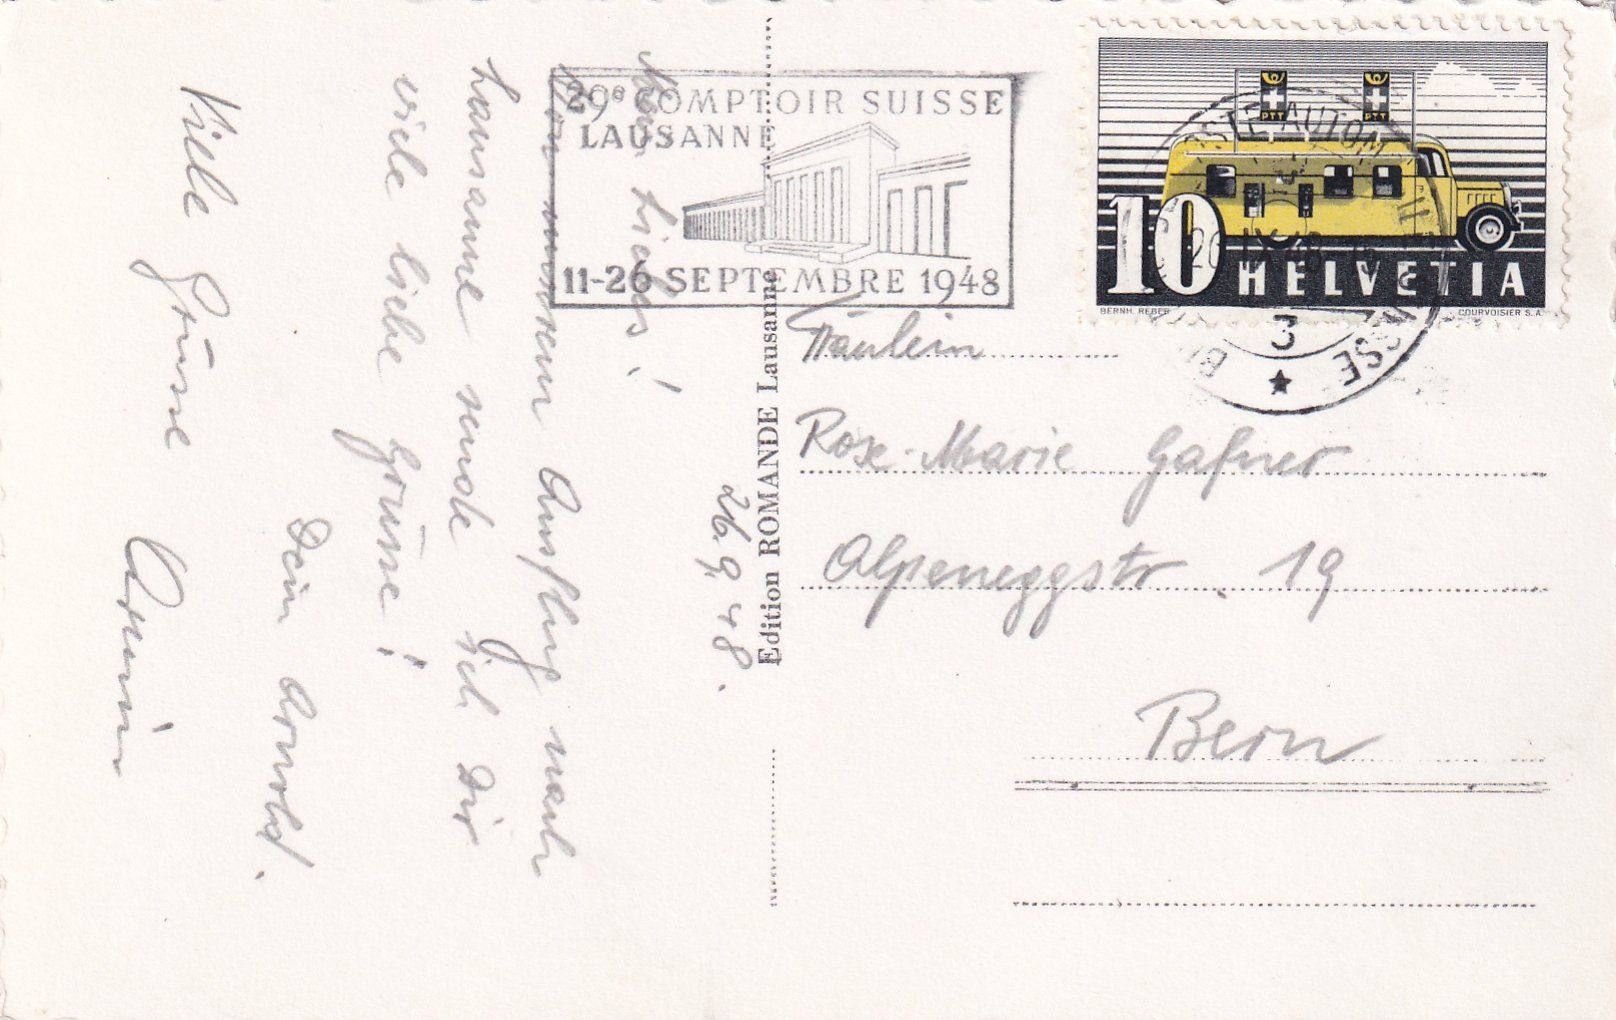 26.9.48.
Mein Liebes!
Von unserem Ausflug nach
Lausanne sende ich Dir
viele liebe Grüsse!
Dein Arnold.
Viele Grüsse
Armin
29e COMPTOIR SUISSE
LAUSANNE
11-26 SEPTEMBRE 1948
Edition ROMANDE Lausanne
PTT
PTT
10 HELVETIA
BERNH. REBER
COURVOISIER S.A.
AUTOM
SUISSE
3
Fräulein
Rose-Marie Gafner
Alpeneggstr. 19
Bern